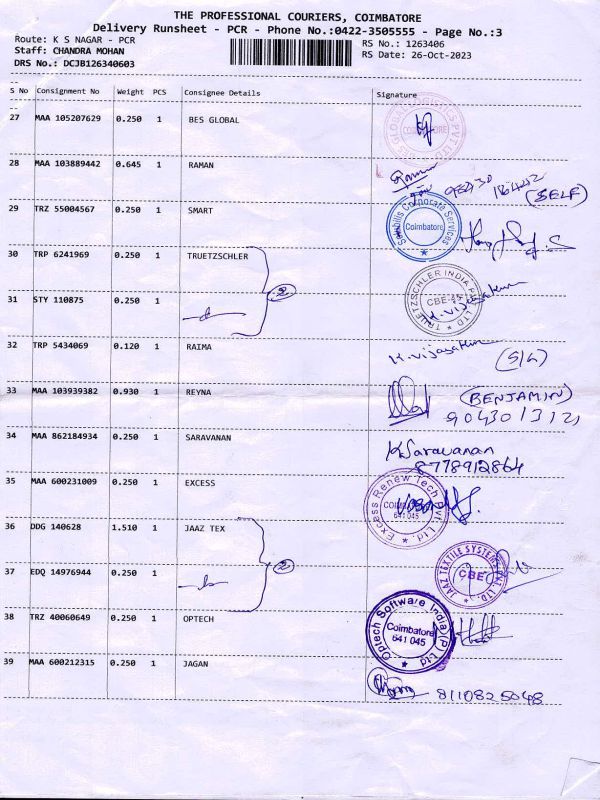 THE PROFESSIONAL COURIERS, COIMBATORE
Delivery Runsheet - PCR - Phone No.:0422-3505555 - Page No.:3
Route: K S NAGAR - PCR
Staff: CHANDRA MOHAN
DRS No.: DCJB126340603
RS No.: 1263406
RS Date: 26-Oct-2023
S No Consignment No Weight PCS Consignee Details Signature
27 MAA 105207629 0.250 1 BES GLOBAL
28 MAA 103889442 0.645 1 RAMAN
(SELF)
29 TRZ 55004567 0.250 1 SMART
Corporate Services
Coimbatore
30 TRP 6241969 0.250 1 TRUETZSCHLER
TRUETZSCHLER INDIA PVT LTD
CBE-45
K. Vijayakum
31 STY 110875 0.250 1
2
32 TRP 5434069 0.120 1 RAIMA
K. Vijayakum
33 MAA 103939382 0.930 1 REYNA
(BENJAMIN)
34 MAA 862184934 0.250 1 SARAVANAN
K. Saravanan
8778912864
35 MAA 600231009 0.250 1 EXCESS
Excess Renew Tech Pvt. Ltd
641 045
36 DDG 140628 1.510 1 JAAZ TEX
37 EDQ 14976944 0.250 1
2
JAAZ TEXTILE SYSTEMS PVT. LTD
CBE
38 TRZ 40060649 0.250 1 OPTECH
Optech Software India (P) Ltd
Coimbatore
641 045
39 MAA 600212315 0.250 1 JAGAN
8110825048